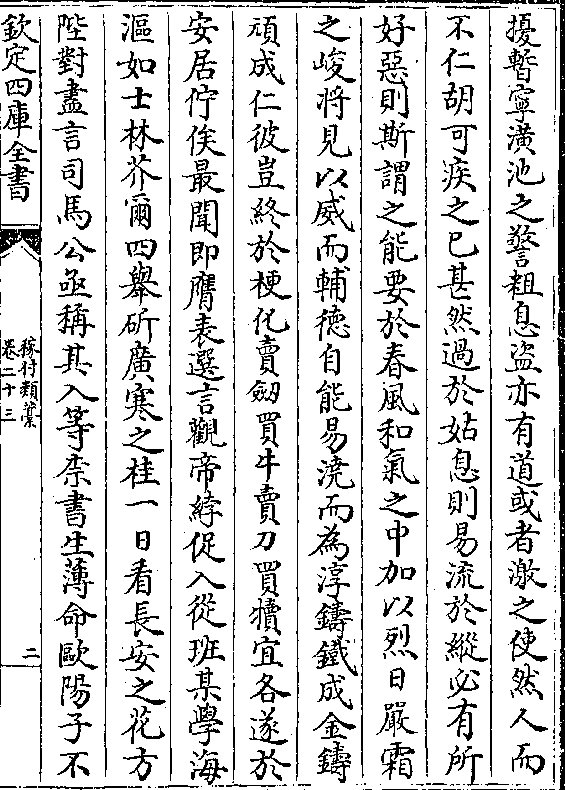 擾暫寧潢池之警粗息盜亦有道或者激之使然人而
不仁胡可疾之已甚然過於姑息則易流於縱必有所
好惡則斯謂之能要於春風和氣之中加以烈日嚴霜
之峻將見以威而輔德自能易澆而為淳鑄鐵成金鑄
頑成仁彼豈終於梗化賣劒買牛賣刀買犢宜各遂於
安居佇俟最聞即膺表選言觀帝綍促入從班某學海
漚如士林芥爾四舉斫廣寒之桂一日看長安之花方
陛對盡言司馬公亟稱其入等柰書生薄命歐陽子不
欽定四庫全書
稼村類藁
卷二十三
二